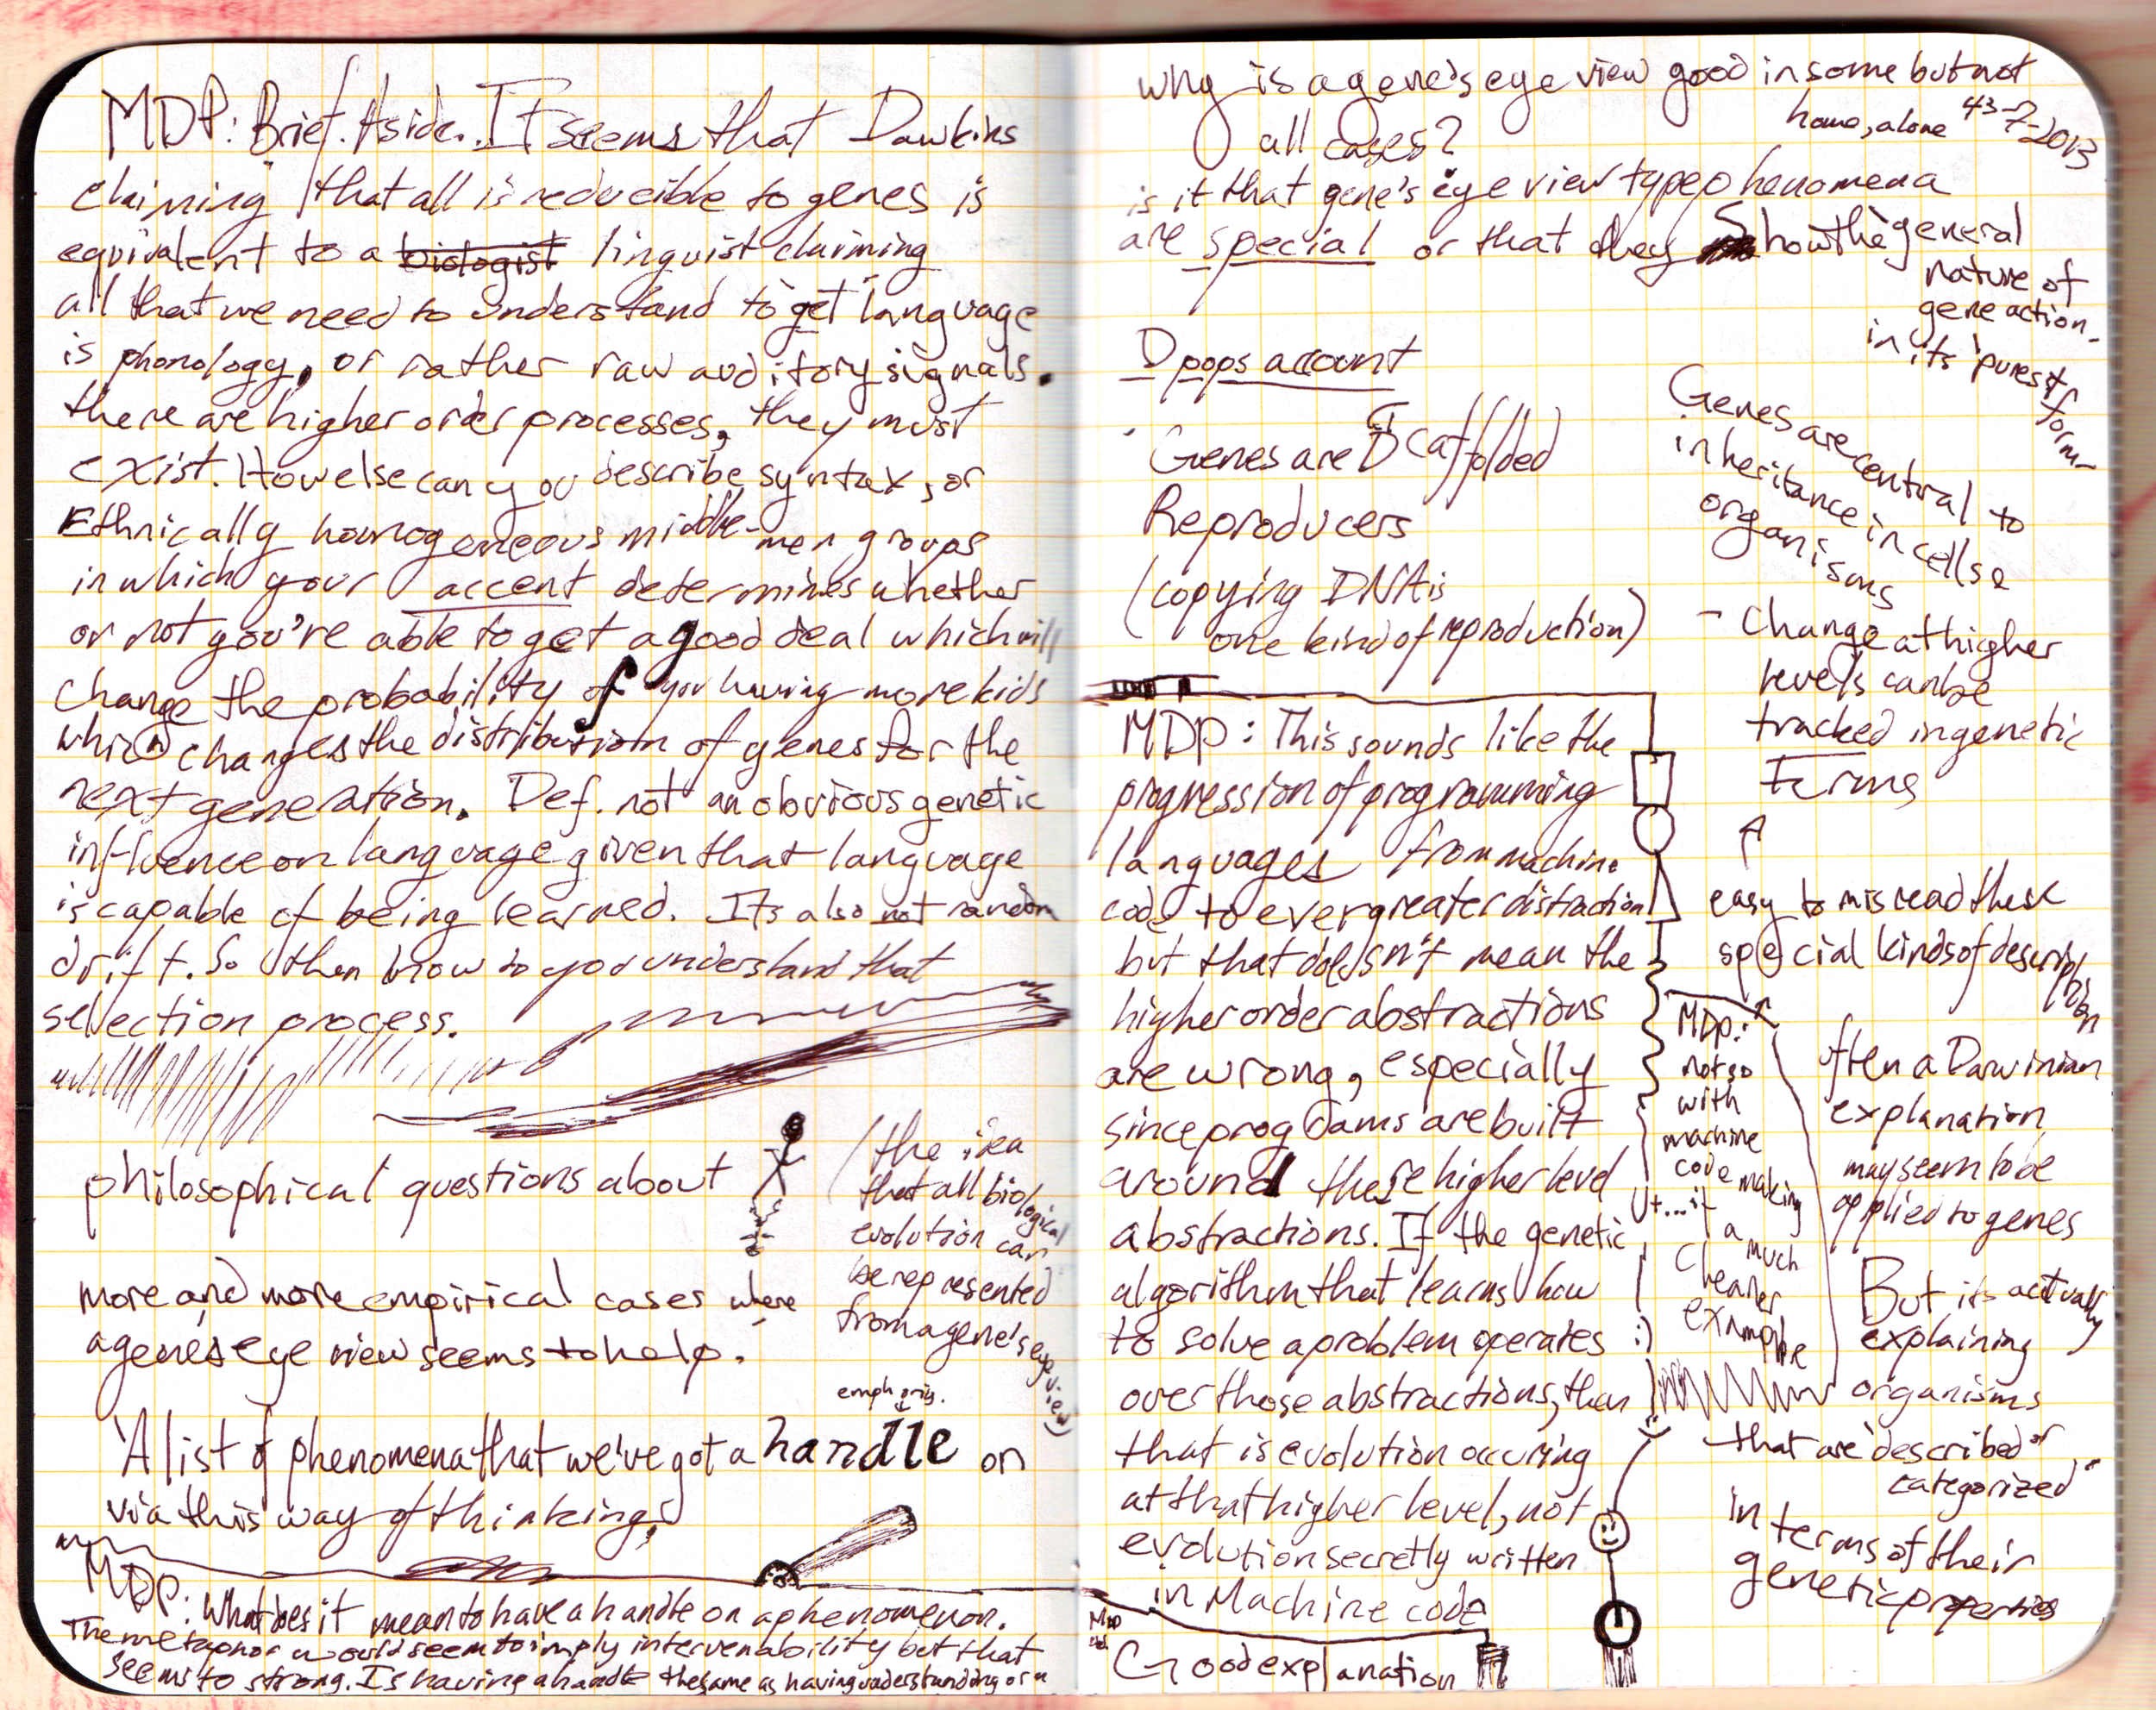 MDP: Brief Aside. It seems that Dawkins
claiming that all is reducible to genes is
equivalent to a biologist linguist claiming
all that we need to understand to get language
is phonology, or rather raw auditory signals.
there are higher order processes, they must
exist. How else can you describe syntax, or
Ethnically homogeneous middle-men groups
in which your accent determines whether
or not you're able to get a good deal which will
change the probability of you having more kids
which changes the distribution of genes for the
next generation. Def. not an obvious genetic
influence on language given that language
is capable of being learned. Its also not random
drift. So then how do you understand that
selection process.
philosophical questions about
(the idea
that all biological
evolution can
be represented
from a gene's eye view)
more and more empirical cases where
a gene's eye view seems to help.
emph orig.
'A list of phenomena that we've got a handle on
via this way of thinking'
MDP: What does it mean to have a handle on a phenomenon.
The metaphor would seem to imply intervenability but that
seems to strong. Is having a handle the same as having understanding or a
why is a gene's eye view good in some but not
all cases?
home, alone 43-7-2013
is it that gene's eye view type phenomena
are special or that they Show the general
nature of
gene action.
in its 'purest
form-
D pops account
Genes are Scaffolded
Reproducers
(copying DNA is
one kind of reproduction)
Genes are central to
inheritance in cells &
organisms
- Change at higher
levels can be
tracked in genetic
terms
easy to misread these
special kinds of description
MDP: This sounds like the
progression of programming
languages from machine
code to ever greater distraction
but that doesn't mean the
higher order abstractions
are wrong, especially
since programs are built
around these higher level
abstractions. If the genetic
algorithm that learns how
to solve a problem operates
over those abstractions, then
that is evolution occuring
at that higher level, not
evolution secretly written
in Machine code
MDP:
not so
with
machine
code making
it a much
cleaner
example
:)
often a Darwinian
explanation
may seem to be
applied to genes
But its actually
explaining
organisms
that are 'described or
categorized'
in terms of their
genetic properties
MDP
Good explanation